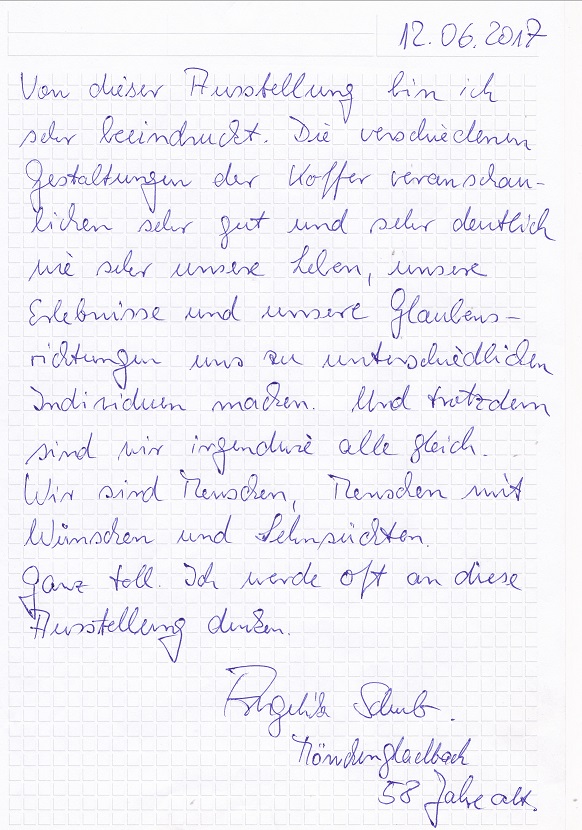 12.06.2017
Von dieser Ausstellung bin ich
sehr beeindruckt. Die verschiedenen
Gestaltungen der Koffer veranschau-
lichen sehr gut und sehr deutlich
wie sehr unsere Leben, unsere
Erlebnisse und unsere Glaubens-
richtungen uns zu unterschiedlichen
Individuen machen. Und trotzdem
sind wir irgendwie alle gleich.
Wir sind Menschen, Menschen mit
Wünschen und Sehnsüchten.
Ganz toll. Ich werde oft an diese
Ausstellung denken.
Angelika
Mönchengladbach
58 Jahre alt.